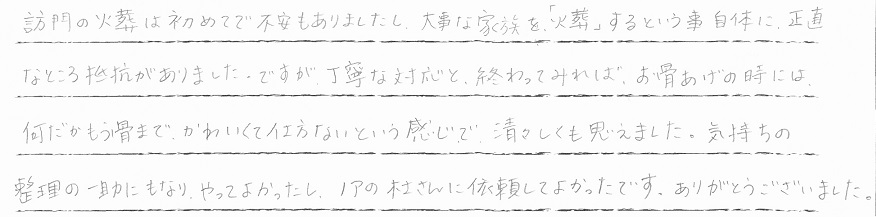 訪問の火葬は初めてで不安もありましたし、大事な家族を、「火葬」するという事自体に、正直
なところ抵抗がありました。ですが、丁寧な対応と、終わってみれば、お骨あげの時には、
何だかもう骨まで、かわいくて仕方ないという感じで、清々しくも思えました。気持ちの
整理の一助にもなり、やってよかったし、ノアの杜さんに依頼してよかったです。ありがとうございました。